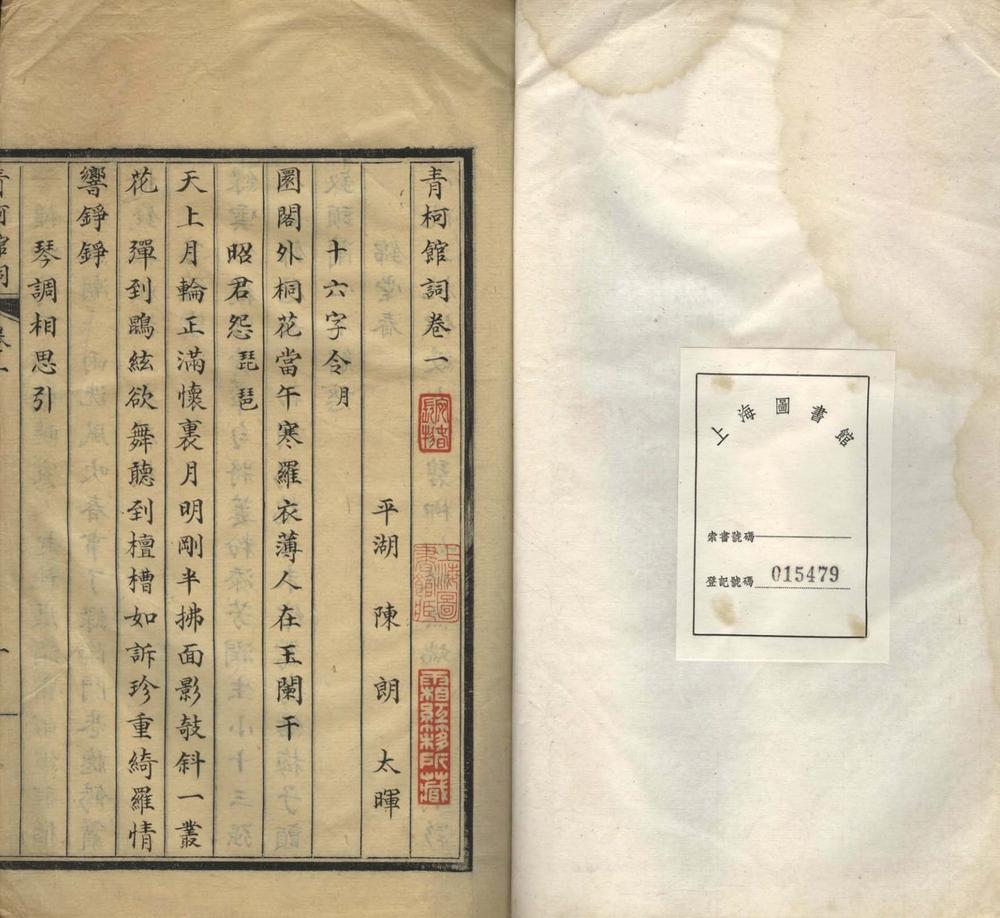 上海圖書館
索書號碼
登記號碼 015479
青柯館詞卷一
平湖 陳朗 太暉
十六字令 月
圜閣外桐花當午寒羅衣薄人在玉闌干
昭君怨 琵琶
天上月輪正滿懷裏月明剛半拂面影攲斜一叢
花 彈到鵾絃欲舞聽到檀槽如訴珍重綺羅情
響錚錚
琴調相思引
上海圖書館藏